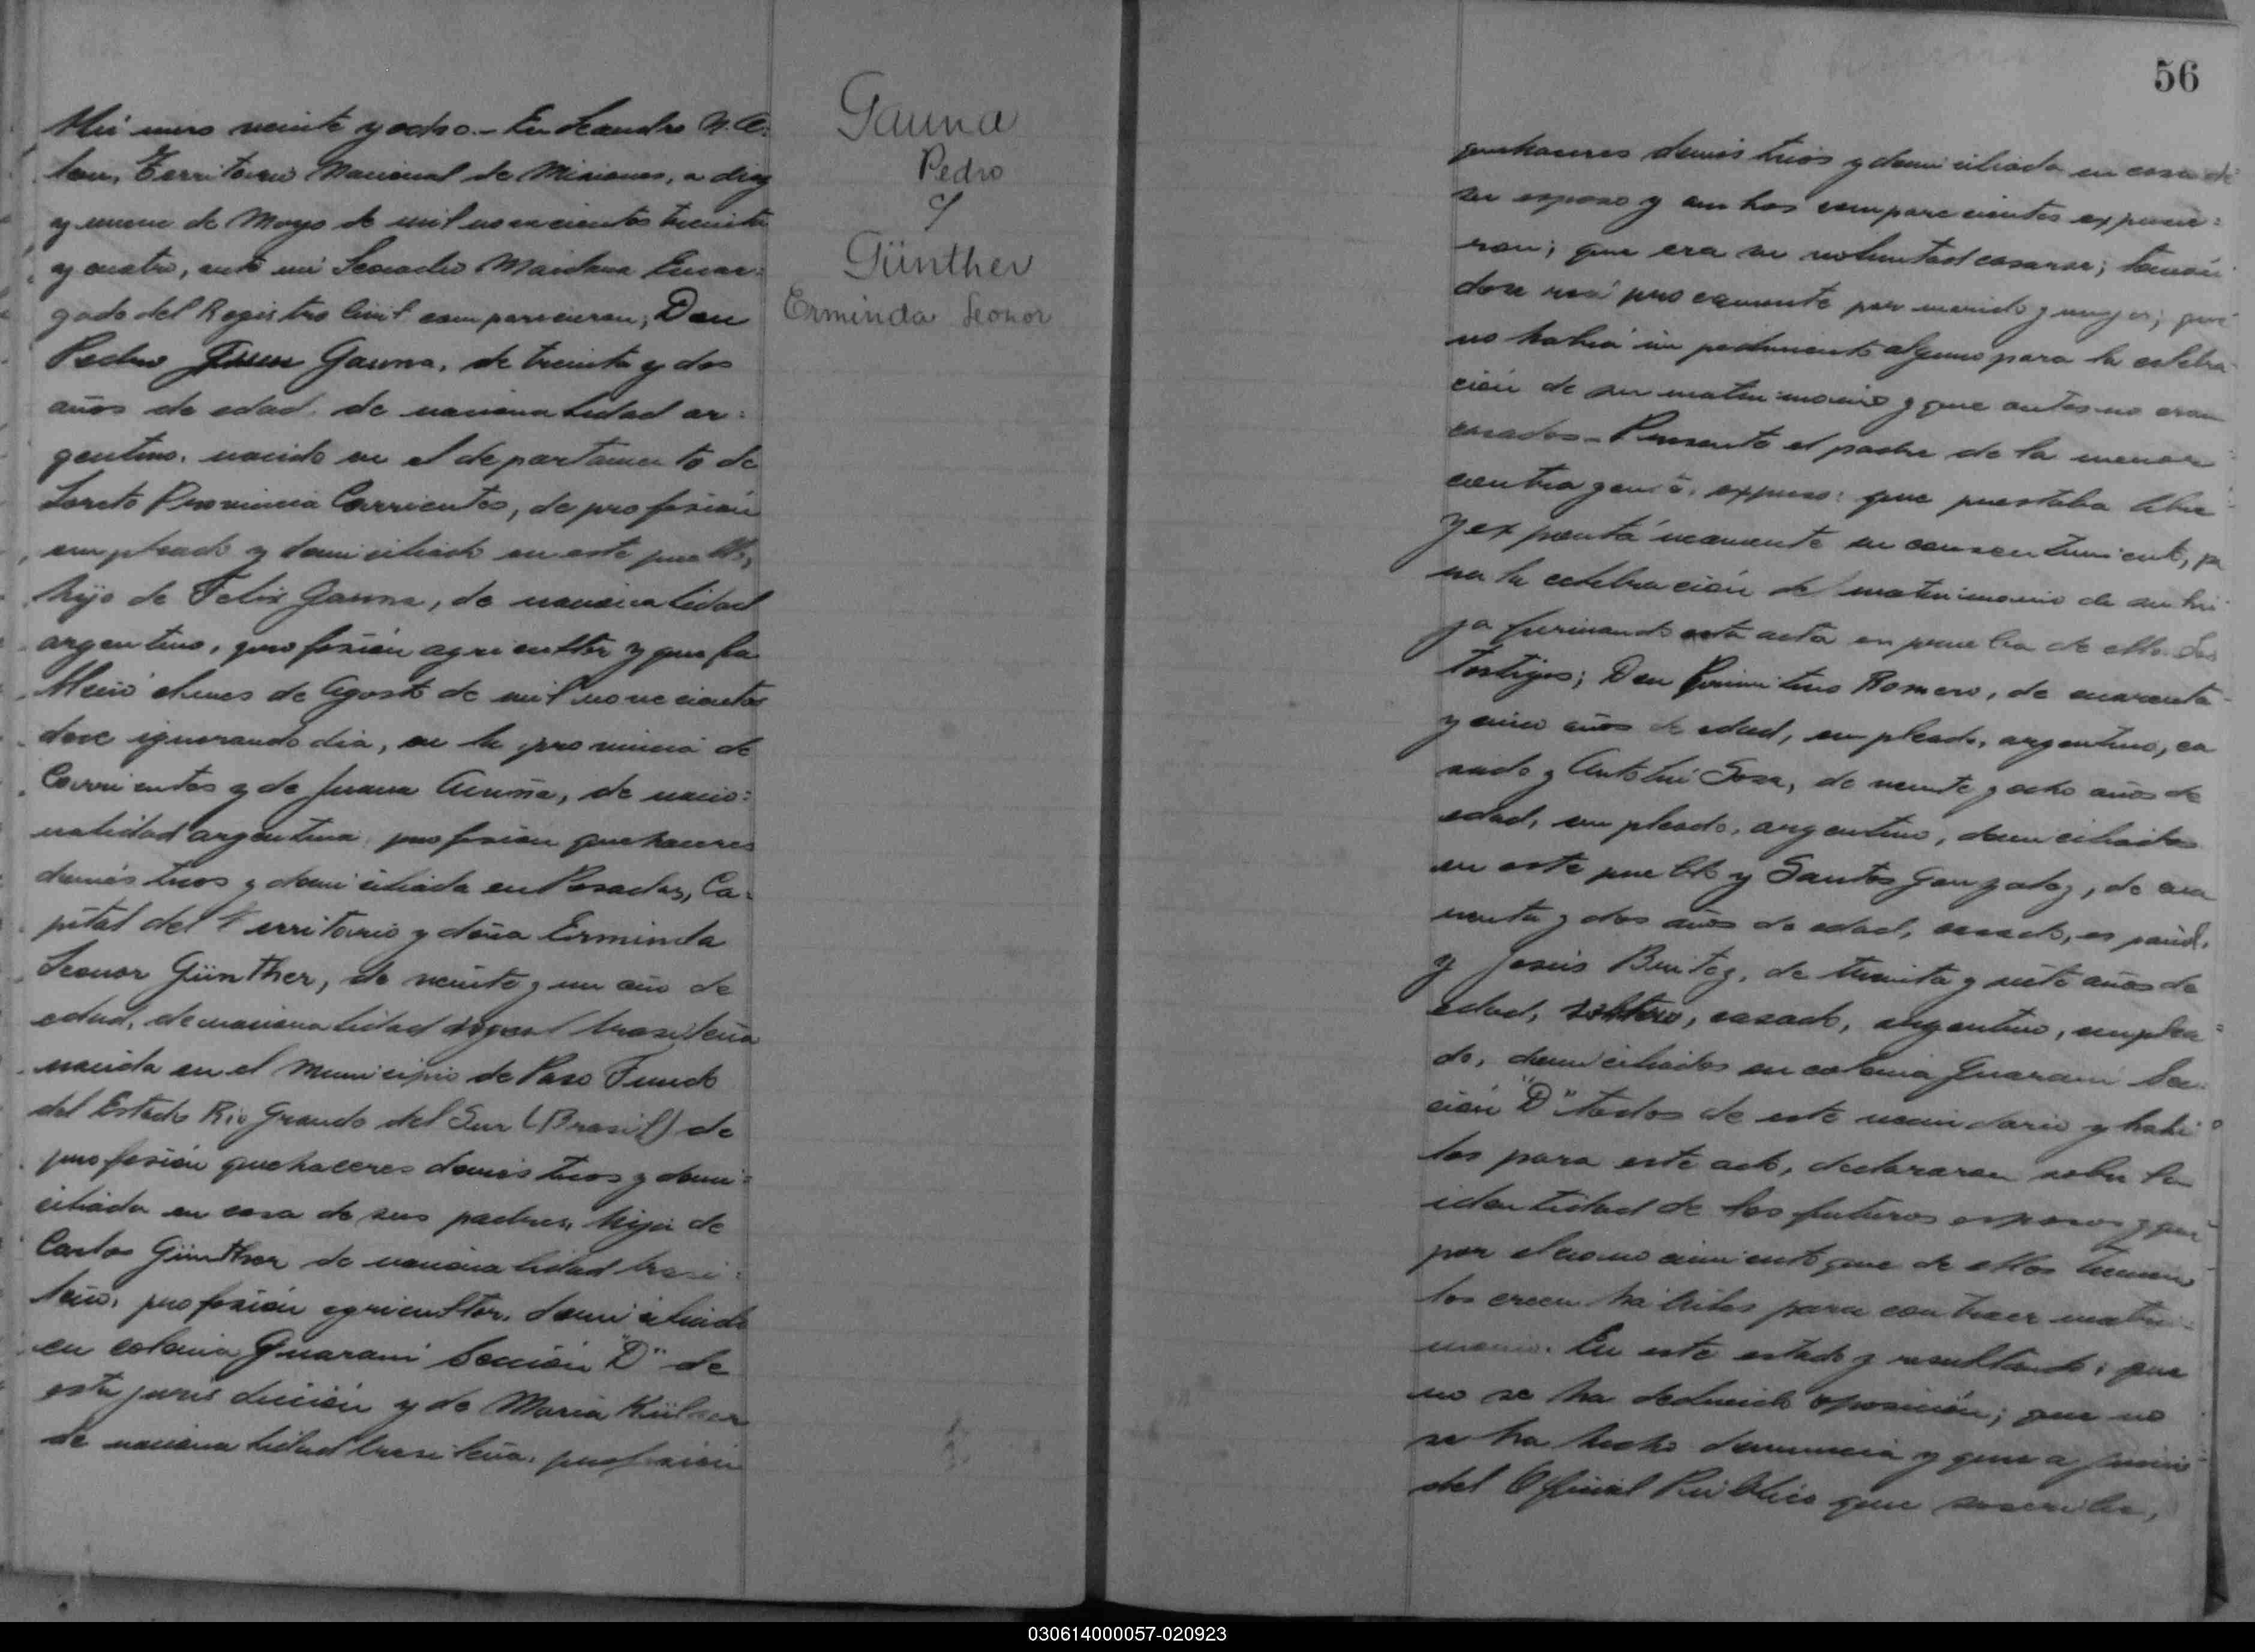 Nú mero veinte y ocho.- En Leandro N. A:
lem, Territorio Nacional de Misiones, a diez
y nueve de Mayo de mil novecientos treinta
y cuatro, ante mi Leocadio Maidana Encar:
gado del Registro Civil comparecieron; Don
Pedro Gauna, de treinta y dos
años de edad, de nacionalidad ar:
gentino, nacido en el departamento de
Loreto Provincia Corrientes, de profesión
empleado y domiciliado en este pueblo,
hijo de Felix Gauna, de nacionalidad
argentino, profesión agricultor y que fa
lleció el mes de Agosto de mil novecientos
doce ignorando dia, en la provincia de
Corrientes y de Juana Acuña, de nacio:
nalidad argentina, profesión quehaceres
domésticos y domiciliada en Posadas, Ca:
pital del Territorio y doña Erminda
Leonor Günther, de veinte y un año de
edad, de nacionalidad brasileña
nacida en el Municipio de Paso Fundo
del Estado Rio Grande del Sur (Brasil) de
profesión quehaceres domésticos y domi:
ciliada en casa de sus padres, hija de
Carlos Günther de nacionalidad brasi:
leño, profesión agricultor, domiciliado
en colonia Guarani Sección "D" de
esta jurisdicción y de Maria
de nacionalidad brasileña, profesión
Gauna
Pedro
y
Günther
Erminda Leonor
56
quehaceres domésticos y domiciliada en casa de
su esposo y ambos comparecientes expusie:
ron; que era su voluntad casarse; tomán
dose reciprocamente por marido y mujer; que
no habia impedimento alguno para la celebra
ción de su matrimonio y que antes no eran
casados.- Presente el padre de la menor
contrayente, expuso: que prestaba libre
y expontáneamente su consentimiento, pa
ra la celebración del matrimonio de su hi
ja firmando esta acta en prueba de ello. Los
testigos; Don Primitivo Romero, de cuarenta
y cinco años de edad, empleado, argentino, ca
sado y Antolín Sosa, de veinte y ocho años de
edad, empleado, argentino, domiciliados
en este pueblo y Santos Gonzalez, de cua
renta y dos años de edad, casado, español,
y Jesús Benitez, de treinta y siete años de
edad, soltero, casado, argentino, emplea:
do, domiciliados en colonia Guarani Sec:
ción "D" todos de este vecindario y habi
les para este acto, declararon sobre la
identidad de los futuros esposos y que
por el conocimiento que de ellos tienen
los creen habiles para contraer matri:
monio. En este estado y resultando; que
no se ha deducido oposición; que no
se ha hecho denuncia y que a juicio
del Oficial Público que suscribe,
030614000057-020923